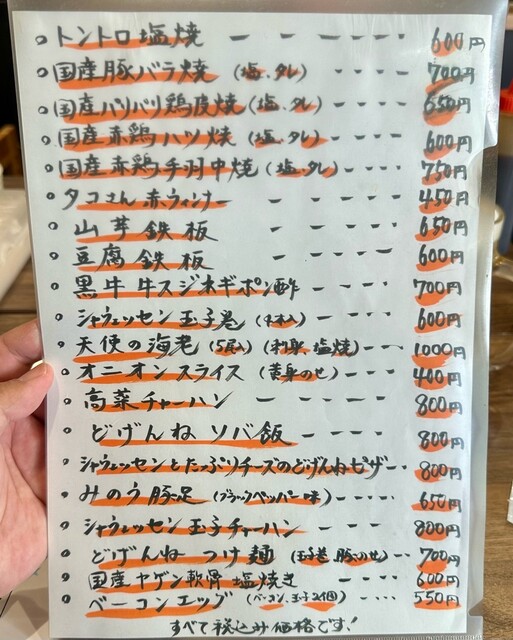 トントロ塩焼 ー ー ー - - - 600円
国産豚バラ焼 (塩、タレ) - - - - 700円
国産パリパリ鶏皮焼 (塩、タレ) - - - - 650円
国産赤鶏ハツ焼 (塩、タレ) - - - - 600円
国産赤鶏手羽中焼 (塩、タレ) - - - - 750円
タコさん赤ウィンナー - - - - - 450円
山芋鉄板 - - - - - 650円
豆腐鉄板 - - - - - 600円
黒牛牛スジネギポン酢 - - - - 700円
シャウエッセン玉子巻 (4本入) - - - - 600円
天使の海老 (5尾入) (刺身、塩焼) - - - 1000円
オニオンスライス (黄身のせ) - - - - 400円
高菜チャーハン - - - - - 800円
どげんねソバ飯 - - - - 800円
シャウエッセンとたっぷりチーズのどげんねピザ - - 800円
みのう豚足 (ブラックペッパー味) - - - - 650円
シャウエッセン玉子チャーハン - - - - 800円
どげんねーつけ麺 (玉子巻、豚のせ) - - - 700円
国産ヤゲン軟骨塩焼き - - - - 600円
ベーコンエッグ (ベーコン、玉子2個) - - - - 550円
すべて税込み価格です!